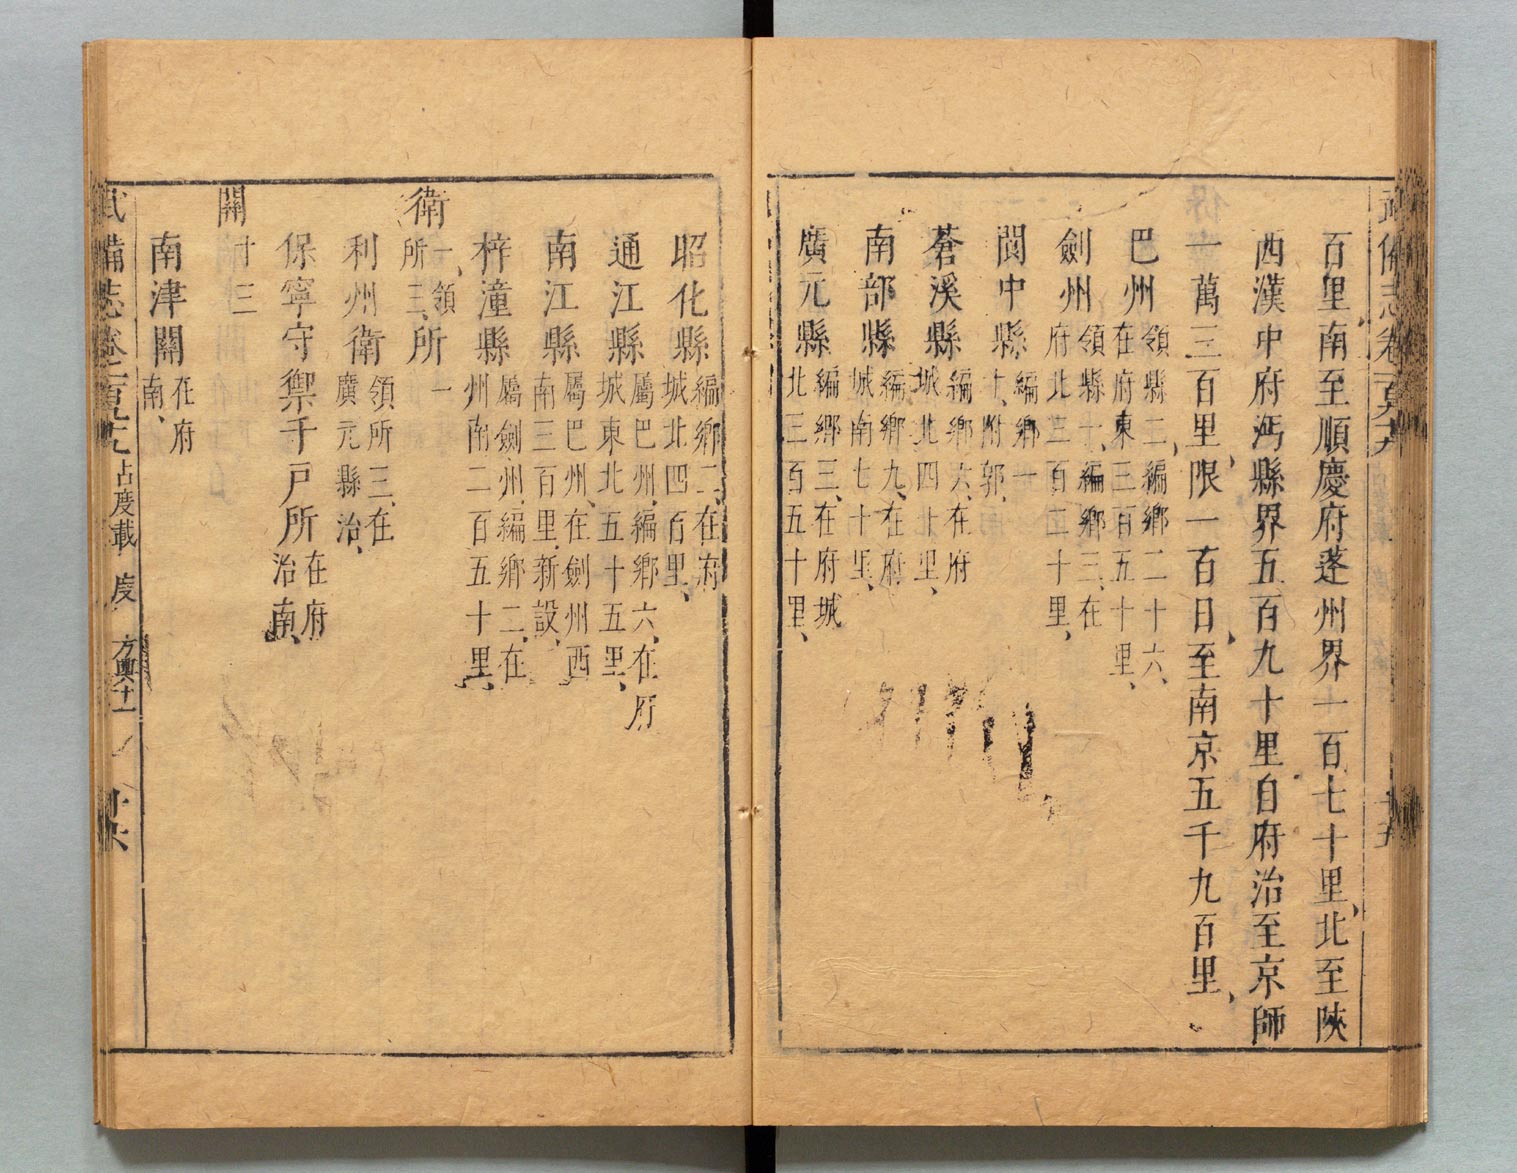 百里南至順慶府蓬州界一百七十里北至陝
西漢中府沔縣界五百九十里自府治至京師
一萬三百里限一百日至南京五千九百里
巴州領縣二編鄉二十六
在府東三百五十里
劍州領縣十編鄉三在
府北三百二十里
閬中縣編鄉一
十附郭
蒼溪縣編鄉六在府
城北四十里
南部縣編鄉九在府
城南七十里
廣元縣編鄉三在府城
北三百五十里
昭化縣編鄉二在府
城北四百里
通江縣屬巴州編鄉六在府
城東北五十五里
南江縣屬巴州在劍州西
南三百里新設
梓潼縣屬劍州編鄉二在
州南二百五十里
衛一領
所三所一
利州衛領所三在
廣元縣治
保寧守禦千戶所在府
治南
關十三
南津關在府
南
武備志卷一百九十 占度載 度 方輿十一 廿六